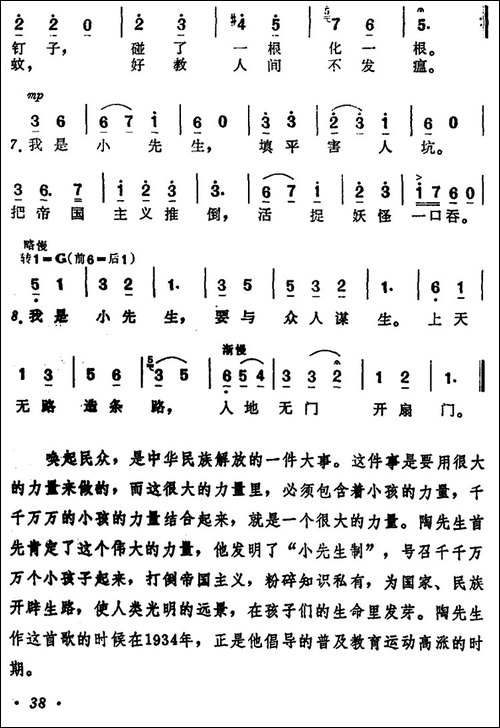 2 2 0 | 2 2 3 | #4 5 | 7 6 | 5.
钉 子， 碰 了 一 根 化 一 根。
蚊， 好 教 人 间 不 发 瘟。
mp
3 6 | 6 7 1 | 6 0 | 3 3 | 2 3 1 | 6 0
7.我 是 小 先 生， 填 平 害 人 坑。
3 6. 7 | 1 2 3 | 3. | 6 7 1 | 3 3 3 | 1 7 6 0
把 帝 国 主 义 推 倒， 活 捉 妖 怪 一口吞。
略慢
转1=G(前6=后1)
5 1 | 3 2 | 1. | 3 5 | 5 3 2 | 1. | 6 1
8.我 是 小 先 生， 要 与 众 人 谋 生。 上 天
渐慢
1 3 | 5 6 | 3 5 | 6 5 4 5 | 3 3 2 | 1 2 | 1.
无 路 造 条 路， 入 地 无 门 开 扇 门。
唤起民众，是中华民族解放的一件大事。这件事是要用很大
的力量来做的，而这很大的力量里，必须包含着小孩的力量，千
千万万的小孩的力量结合起来，就是一个很大的力量。陶先生首
先肯定了这个伟大的力量，他发明了“小先生制”，号召千千万
万个小孩子起来，打倒帝国主义，粉碎知识私有，为国家、民族
开辟生路，使人类光明的远景，在孩子们的生命里发芽。陶先生
作这首歌的时候在1934年，正是他倡导的普及教育运动高涨的时
期。
· 38 ·